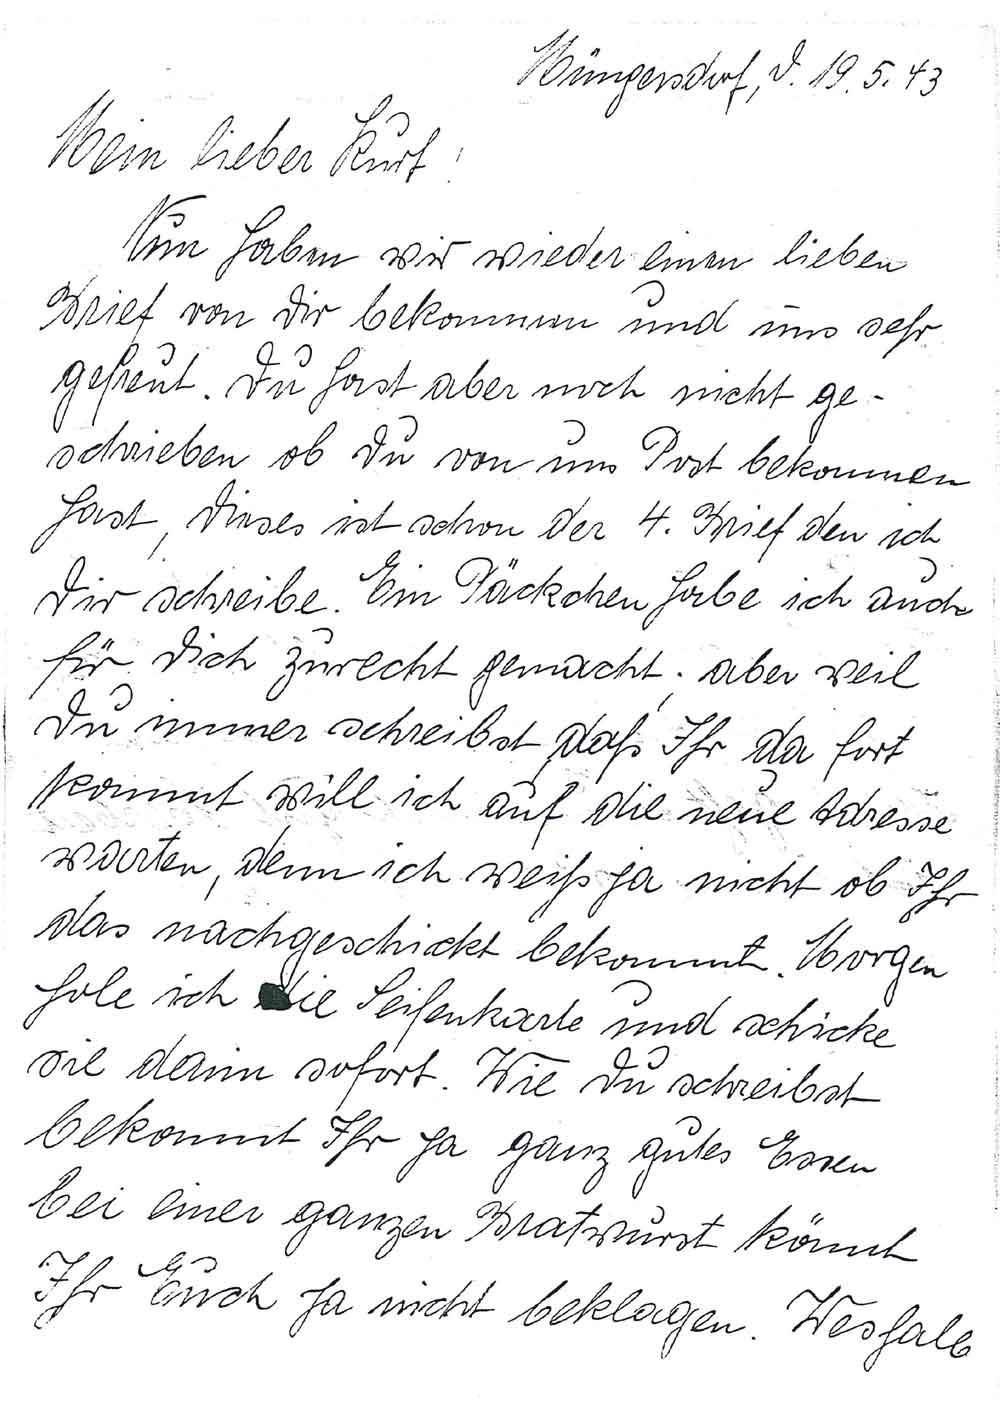 Müngersdorf, d. 19.5.43
Mein lieber Kurt!
Nun haben wir wieder einen lieben
Brief von Dir bekommen und uns sehr
gefreut. Du hast aber noch nicht ge-
schrieben ob Du von uns Post bekommen
hast, dieses ist schon der 4. Brief den ich
Dir schreibe. Ein Päckchen habe ich auch
für Dich zurecht gemacht, aber weil
Du immer schreibst, daß Ihr da fort
kommt will ich auf die neue Adresse
warten, denn ich weiß ja nicht ob Ihr
das nachgeschickt bekommt. Morgen
hole ich die Seifenkarte und schicke
sie dann sofort. Wie Du schreibst
bekommt Ihr ja ganz gutes Essen
bei einer ganzen Bratwurst könnt
Ihr Euch ja nicht beklagen. Weshalb